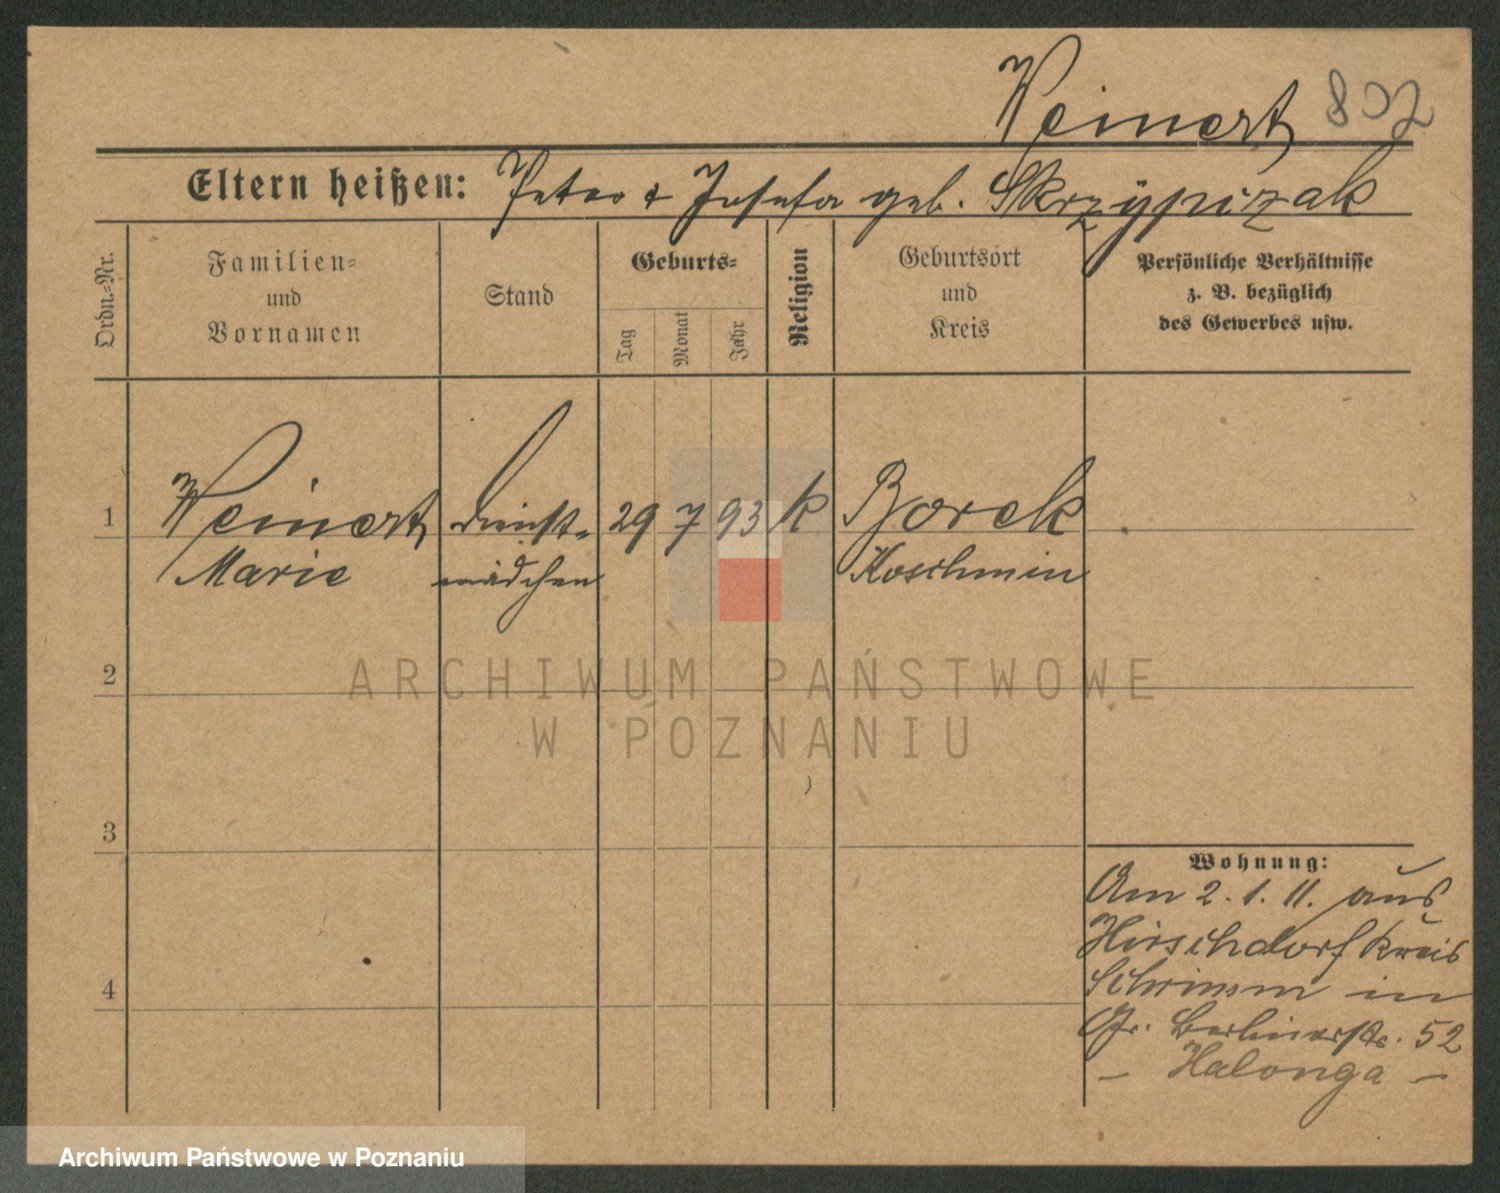 Weinert 802
Eltern heißen: Peter & Josefa geb. Skrzypczak
Ordn.-Nr.
Familien-
und
Vornamen
Stand
Geburts-
Tag
Monat
Jahr
Religion
Geburtsort
und
Kreis
Persönliche Verhältnisse
z. B. bezüglich
des Gewerbes usw.
1 Weinert Dienst- 29 7 93 k Borek
Marie mädchen Koschmin
2
ARCHIWUM PAŃSTWOWE
W POZNANIU
3
Wohnung:
Am 2. 1. 11. aus
Hirschdorf Kreis
Schrimm in
4
Gr. Berlinerstr. 52
- Halonga -
Archiwum Państwowe w Poznaniu